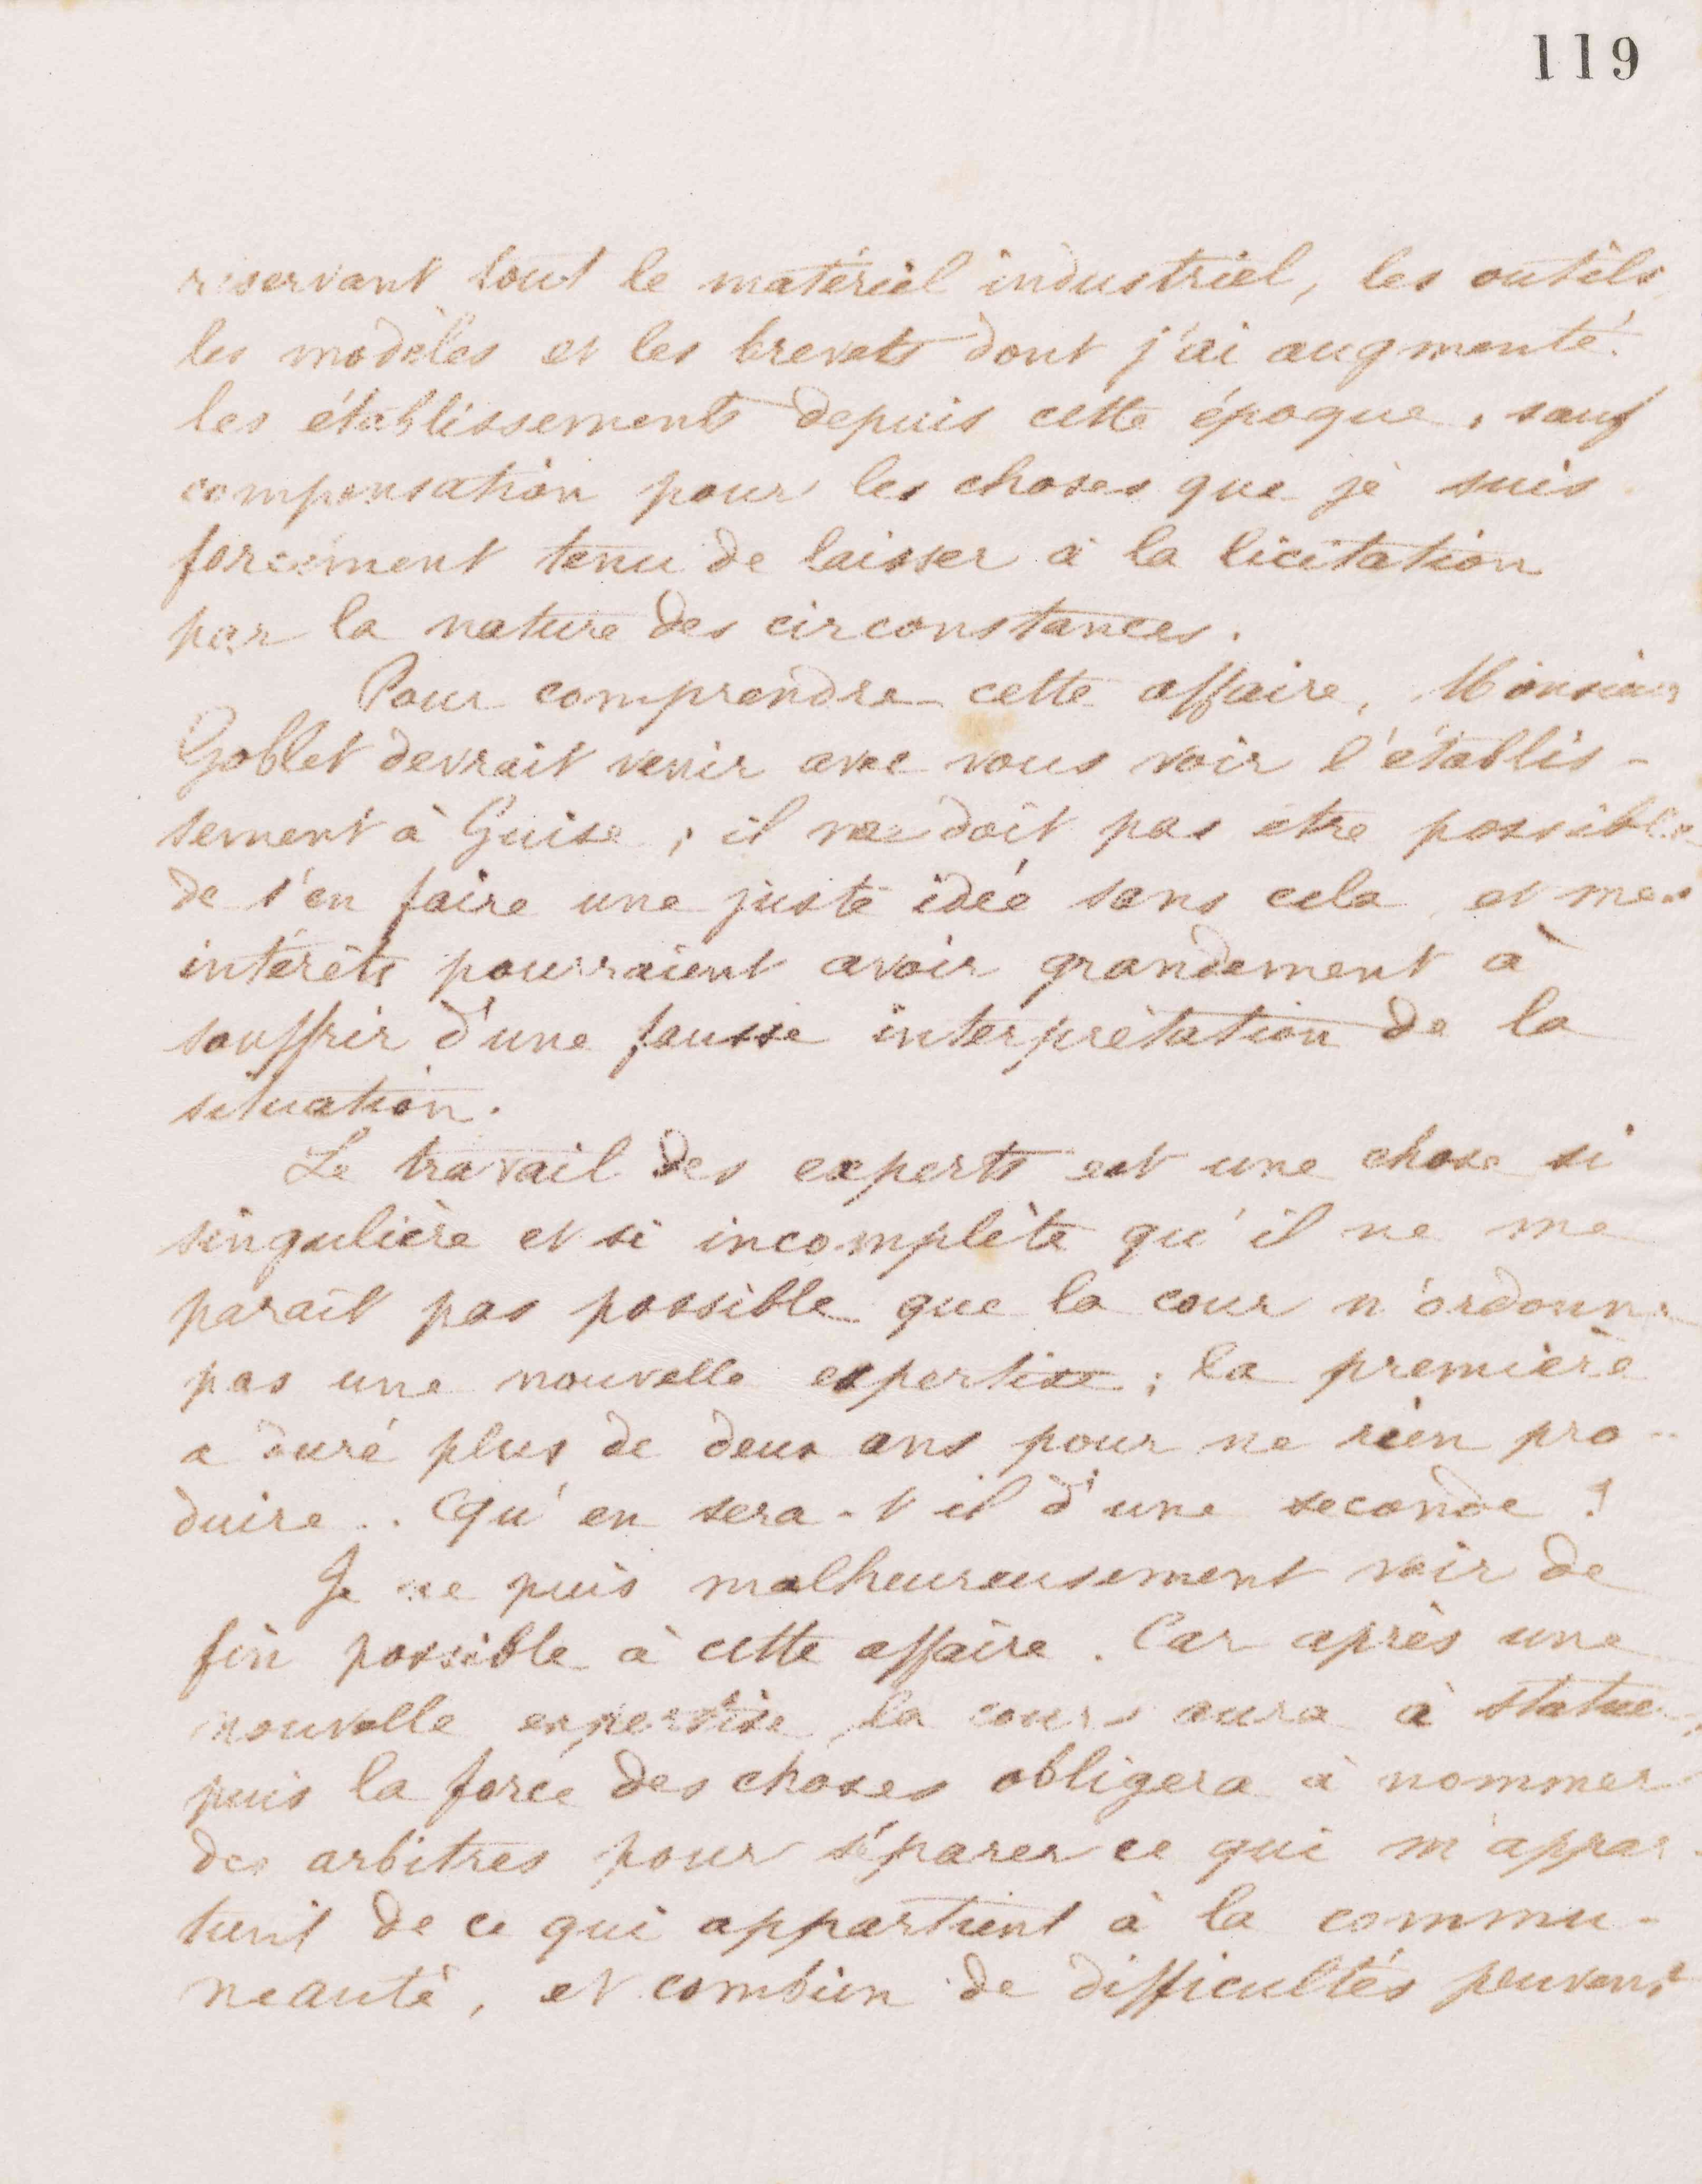 119
réservant tout le matériel industriel, les outils
les modèles et les brevets dont j'ai augmenté
les établissements depuis cette époque, sauf
compensation pour les choses que je suis
forcément tenu de laisser à la licitation
par la nature des circonstances.
Pour comprendre cette affaire, Monsieur
Goblet devrait venir avec vous voir l'établis-
sement à Guise ; il ne doit pas être possible
de s'en faire une juste idée sans cela et mes
intérêts pourraient avoir grandement à
souffrir d'une fausse interprétation de la
situation.
Le travail des experts est une chose si
singulière et si incomplète qu'il ne me
parait pas possible que la cour n'ordonne
pas une nouvelle expertise ; la première
a duré plus de deux ans pour ne rien pro-
duire.. Qu'en sera-t il d'une seconde ?
Je ne puis malheureusement voir de
fin possible à cette affaire. Car après une
nouvelle expertise la cour aura à statuer,
puis la force des choses obligera à nommer
des arbitres pour séparer ce qui m'appar-
tient de ce qui appartient à la commu-
neauté, et combien de difficultés peuvent